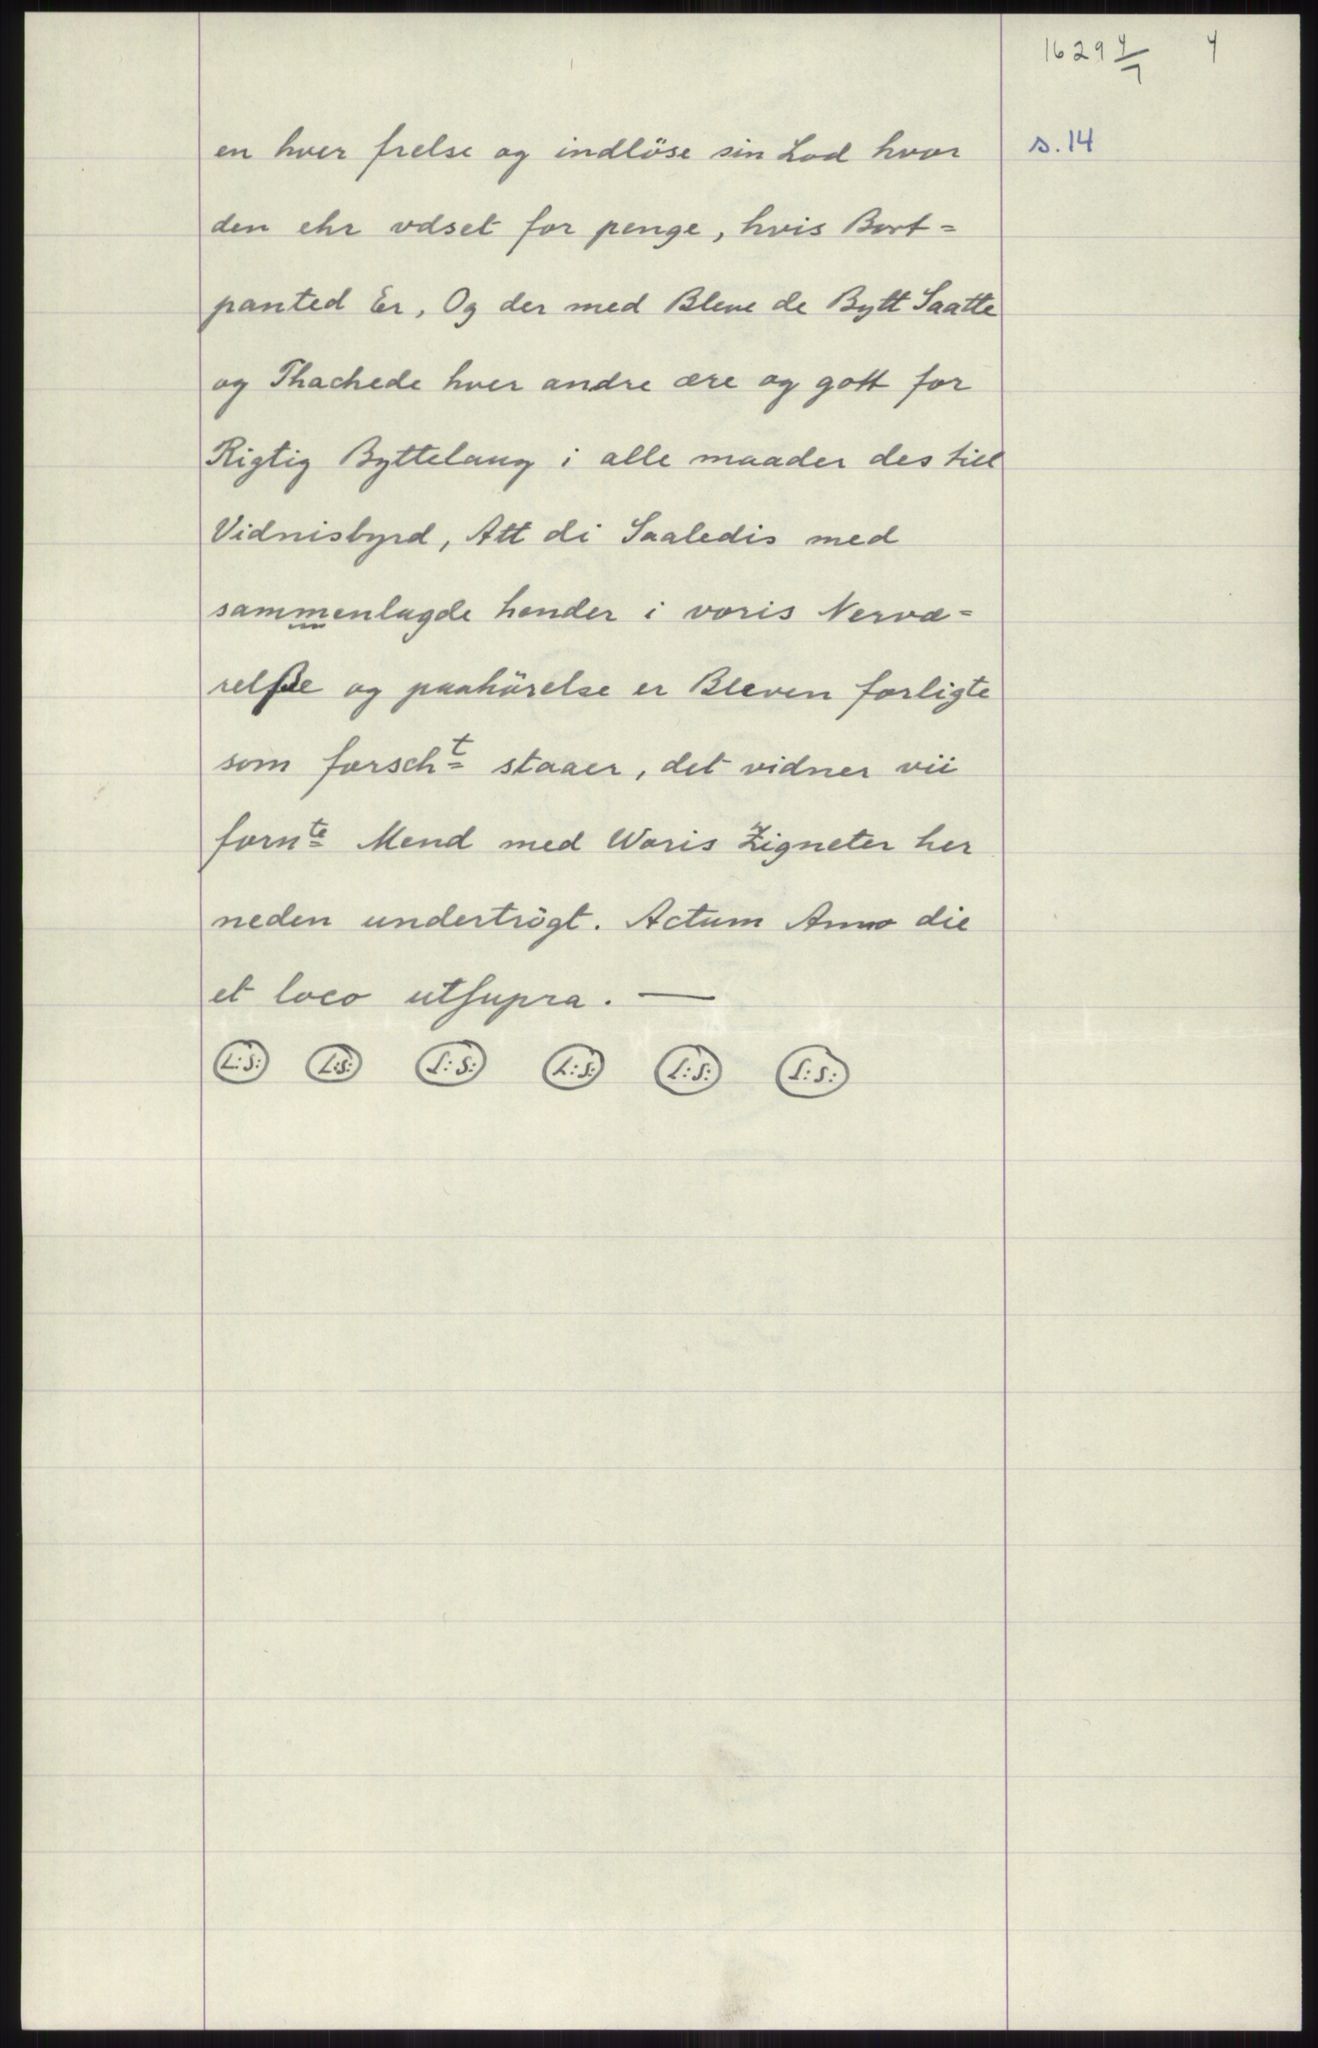 1629 4/7 4
s. 14
en hver frelse og indlöse sin Lod hvor
den ehr vdset for penge, hvis Bort=
panted Er, Og der med Bleve de Bytt Saatte
og Thachede hver andre ære og gott for
Rigtig Byttelaug i alle maader des till
Vidnisbyrd, Att di Saaledis med
sammenlagde hender i voris Nervæ=
relße og paahörelse er Bleven forligte
som forscht= staaer, det vidner vii
fornte= Mend med Woris Zigneter her
neden undertrögt. Actum Anno die
et loco utsupra. —
L:S: L:S: L:S: L:S: L:S: L:S: